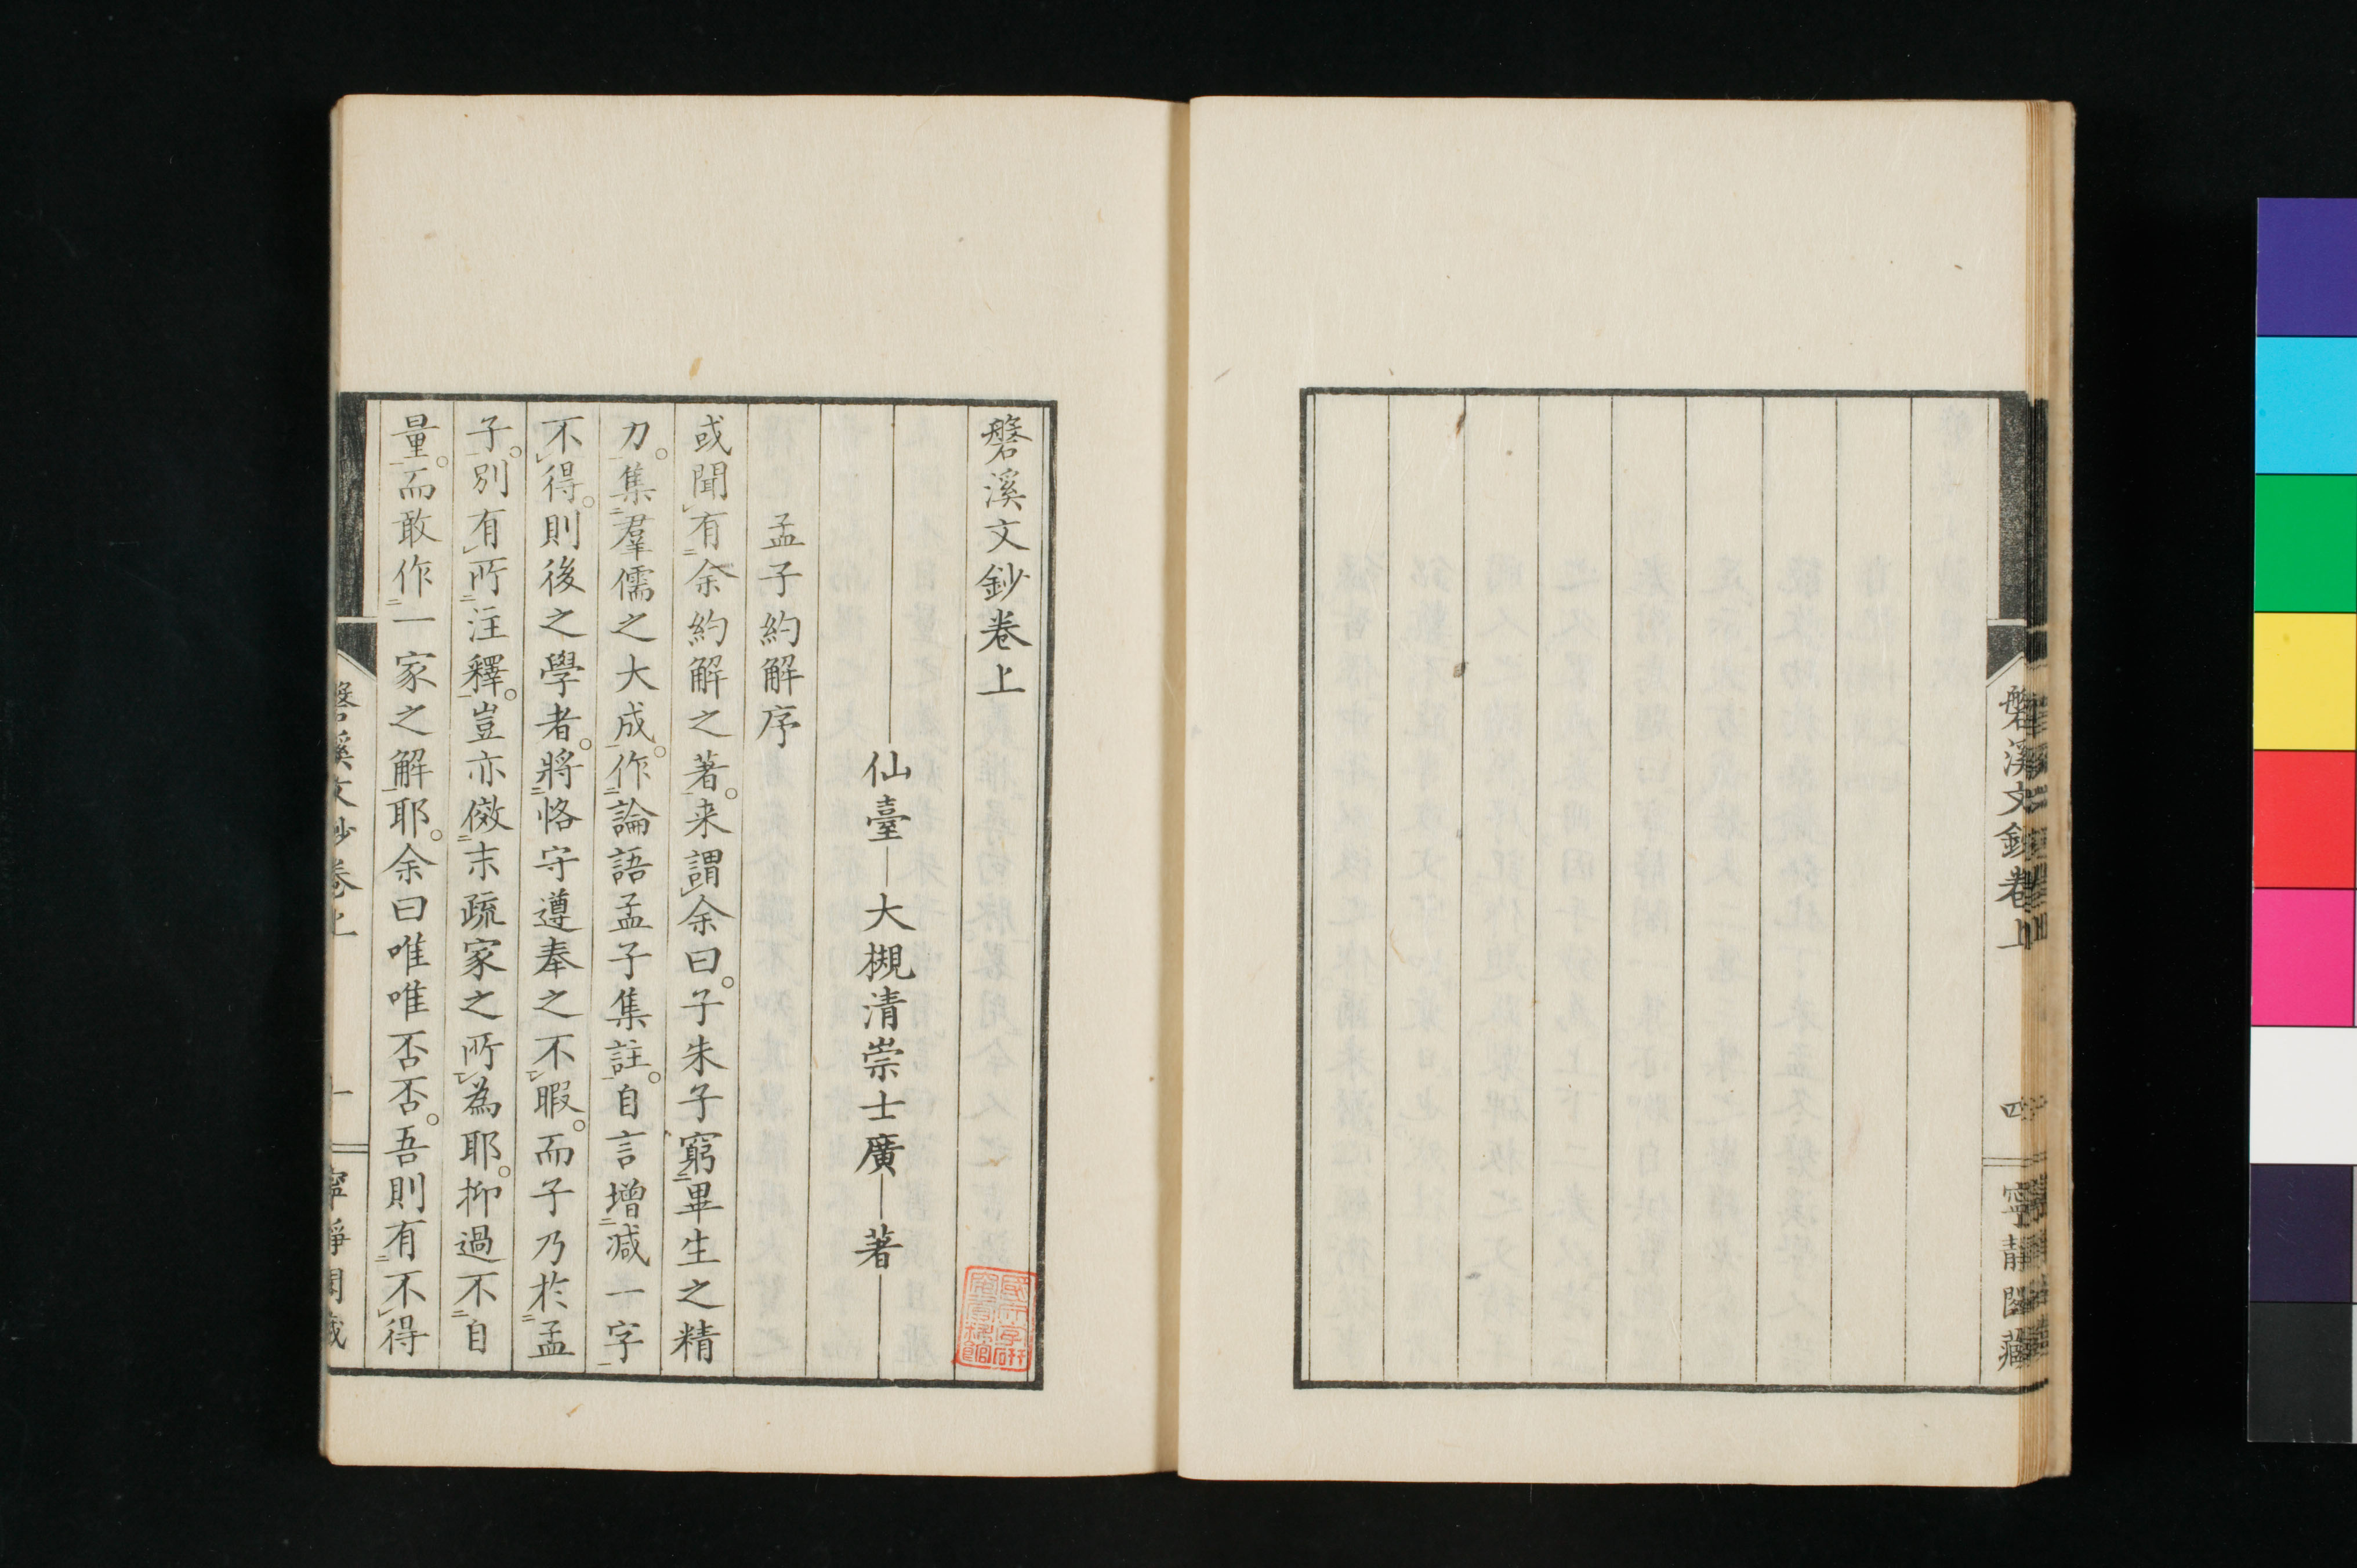 磐溪文鈔卷上
四
寧靜閣藏
磐溪文鈔卷上
仙臺 大槻清崇士廣 著
孟子約解序
或聞有余約解之著。来謂余曰。子朱子窮畢生之精
力。集羣儒之大成。作論語孟子集註。自言增減一字
不得。則後之學者。將恪守遵奉之不暇。而子乃於孟
子。別有所注釋。豈亦倣末疏家之所為耶。抑過不自
量。而敢作一家之解耶。余曰唯唯否否。吾則有不得
磐溪文鈔卷上
一
寧靜閣藏